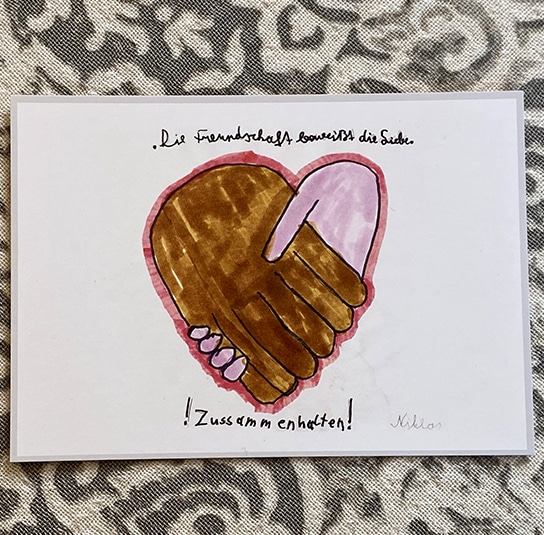 .Die Freundschaft beweißt die Liebe.
!Zussammenhalten!
Niklas